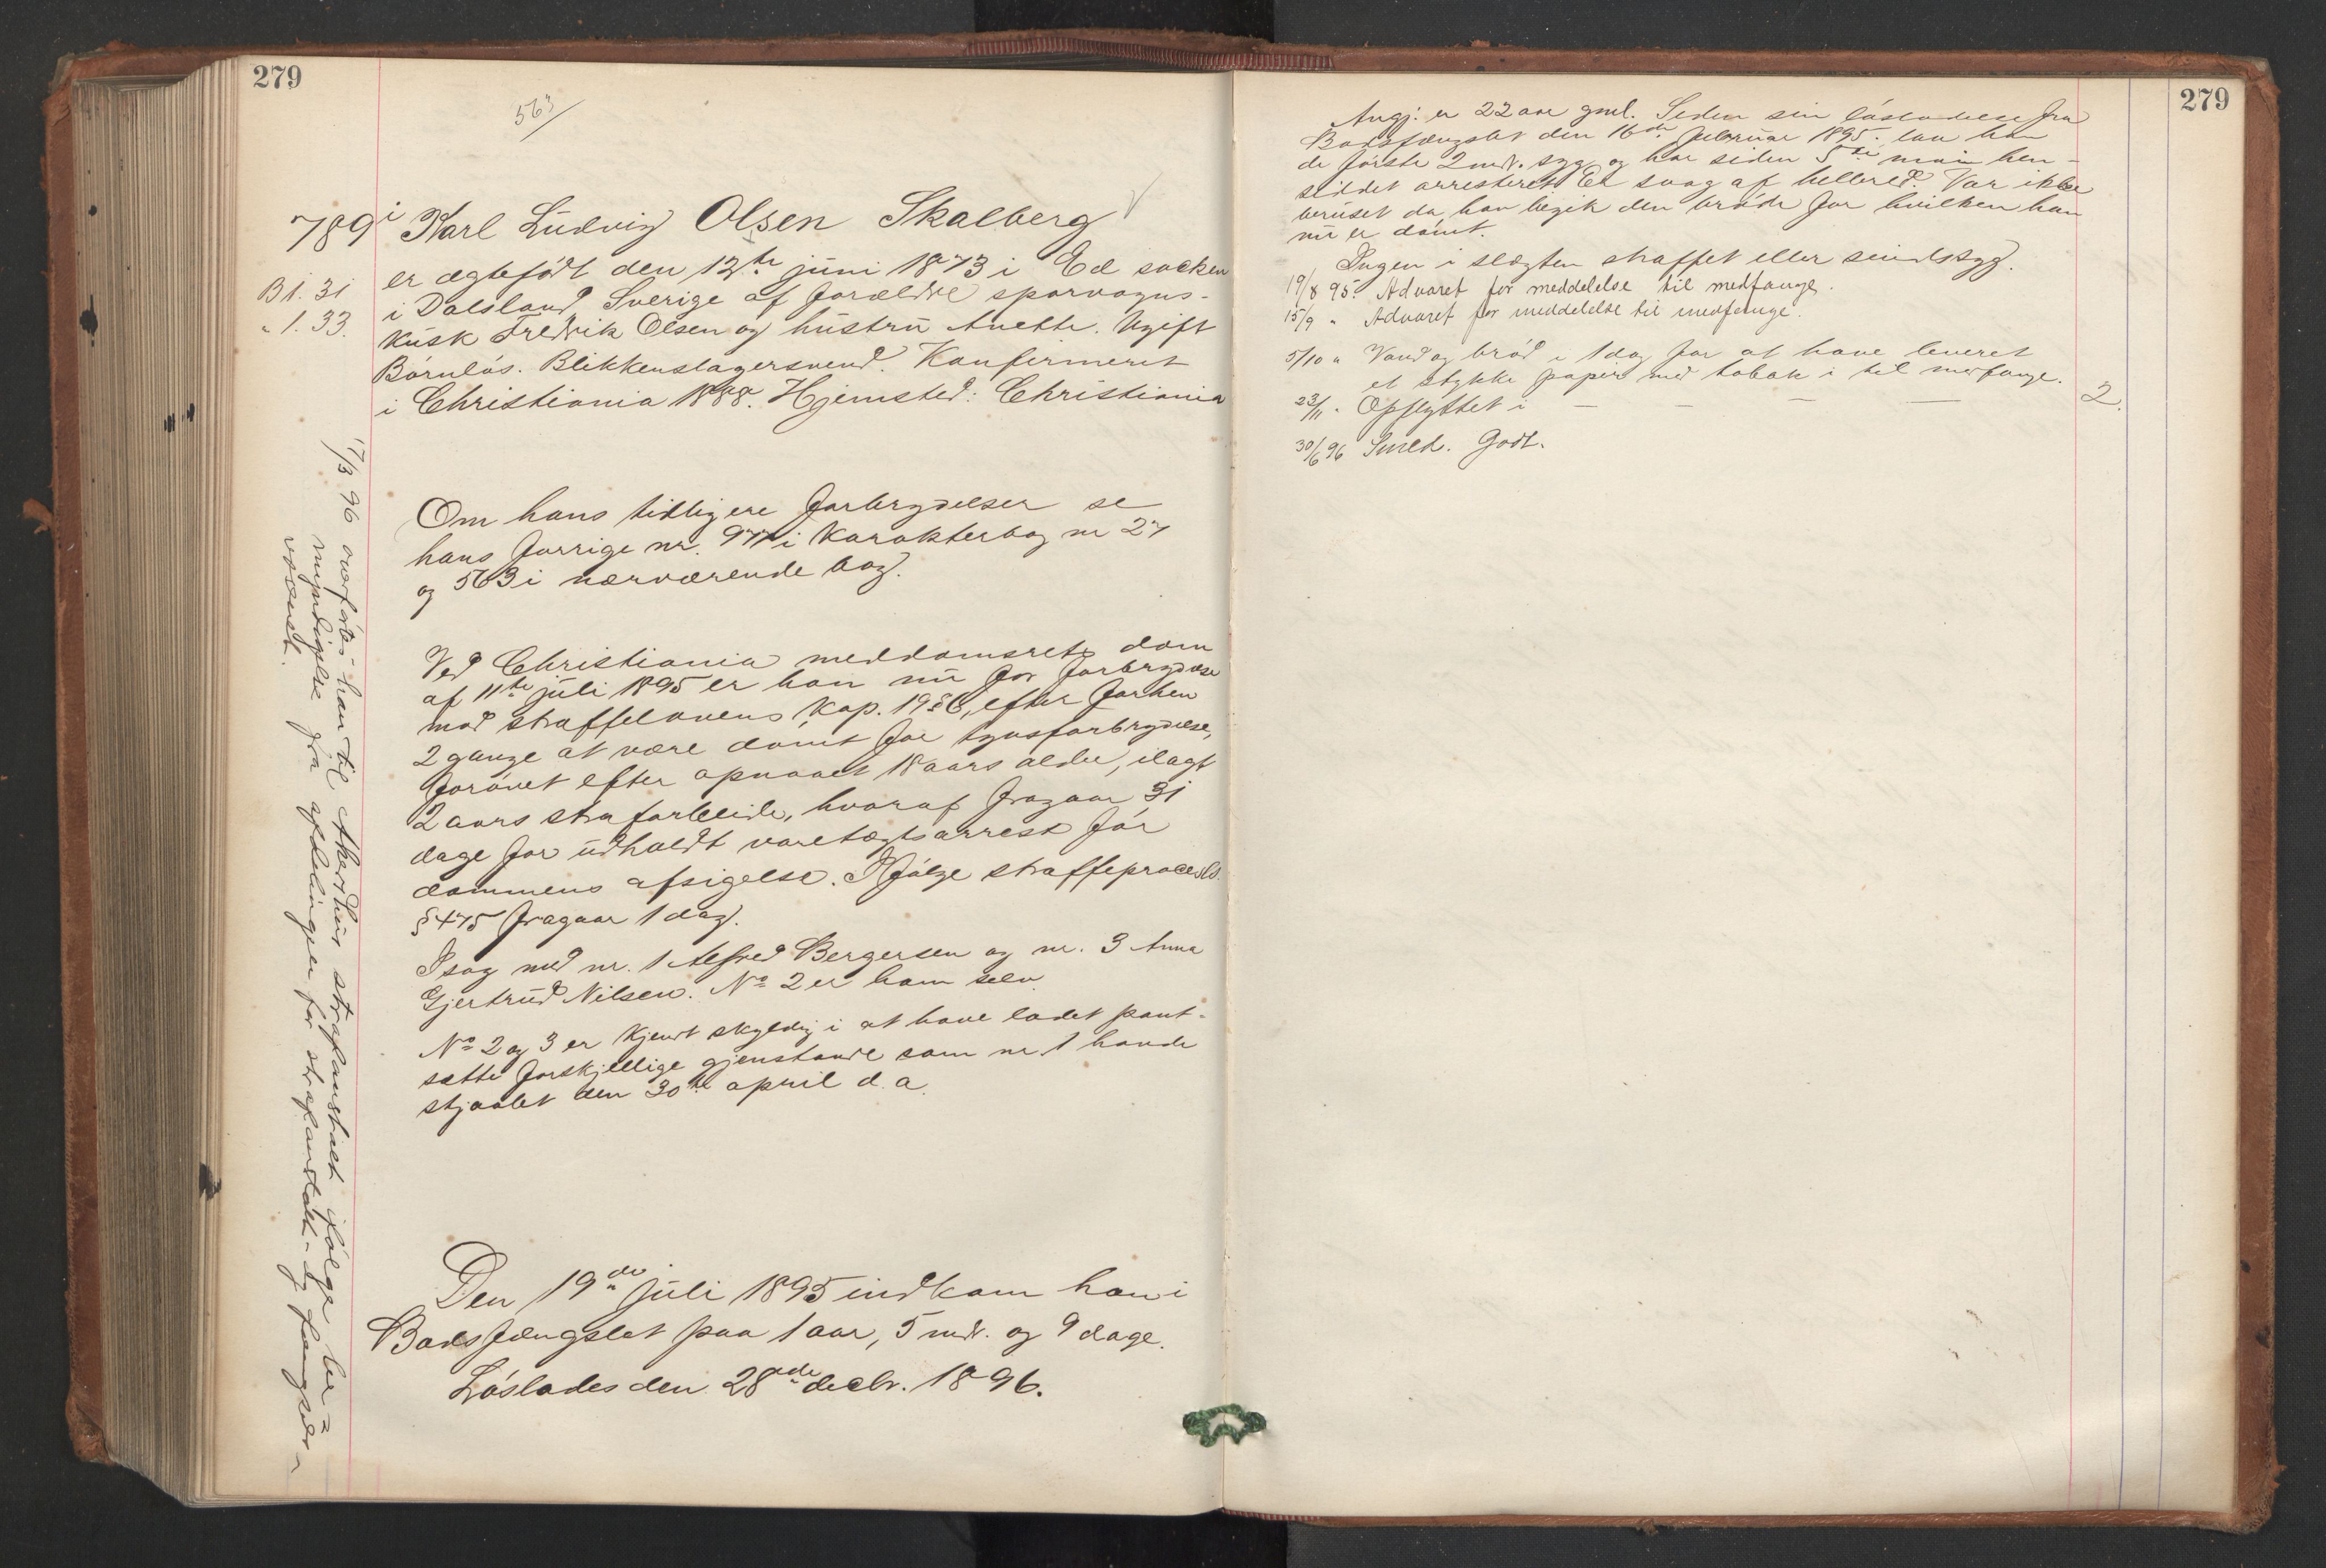 279
563/
789 i Karl Ludvig Olsen Skalberg
er ægtefødt den 12te juni 1873 i Ed socken
B 1. 31
" 1. 33.
i Dalsland Sverige af forældre sporvogns-
kusk Fredrik Olsen og hustru Anette. Ugift
Børnløs. Blikkenslagersvend. Konfirmeret
i Christiania 1888. Hjemsted: Christiania
Om hans tidligere forbrydelser se
hans forrige nr. 977 i karakterbog nr 27
og 563 i nærværende bog.
Ved Christiania meddomsrets dom
af 11te juli 1895 er han nu for forbrydelse
mod straffelovens kap. 19 § 6, efter forhen
2 gange at være dømt for tyvsforbrydelse,
forøvet efter opnaaet 18 aars alder, ilagt
2 aars strafarbeide, hvoraf fragaar 31
dage for udholdt varetægtsarrest før
dommens afsigelse. Ifølge straffeprocesls.
§ 475 fragaar 1 dag.
I sag med nr. 1 Alfred Bergersen og nr. 3 Anna
Gjertrud Nilsen. No 2 er ham selv.
No 2 og 3 er kjendt skyldig i at have ladet pant-
sætte forskjellige gjenstande som nr. 1 havde
stjaalet den 30te april d. a.
Den 19de juli 1895 indkom han i
Bodsfængslet paa 1 aar, 5 mdr. og 9 dage.
Løslades den 28de decbr. 1896.
17/3 96 overført han til Akershus strafanstalt ifølge be-
myndigelse fra afdelingen for strafanstalt- og fængsels-
væsenet.
279
Angj. er 22 aar gml. Siden sin løsladelse fra
Bodsfængslet den 16de februar 1895 laa han
de første 2 mdr. syg og har siden 5te mai hen-
siddet arresteret. Er svag af helbred. Var ikke
beruset da han begik den brøde for hvilken han
nu er dømt.
Ingen i slægten straffet eller sindssyg.
19/8 95. Advaret for meddelelse til medfange.
15/9 " Advaret for meddelelse til medfange.
5/10 " Vand og brød i 1 dag for at have leveret
et stykke papir med tobak i til medfange.
23/11 " Opflyttet i — — — — 2.
30/6 96 Smed. Godt.